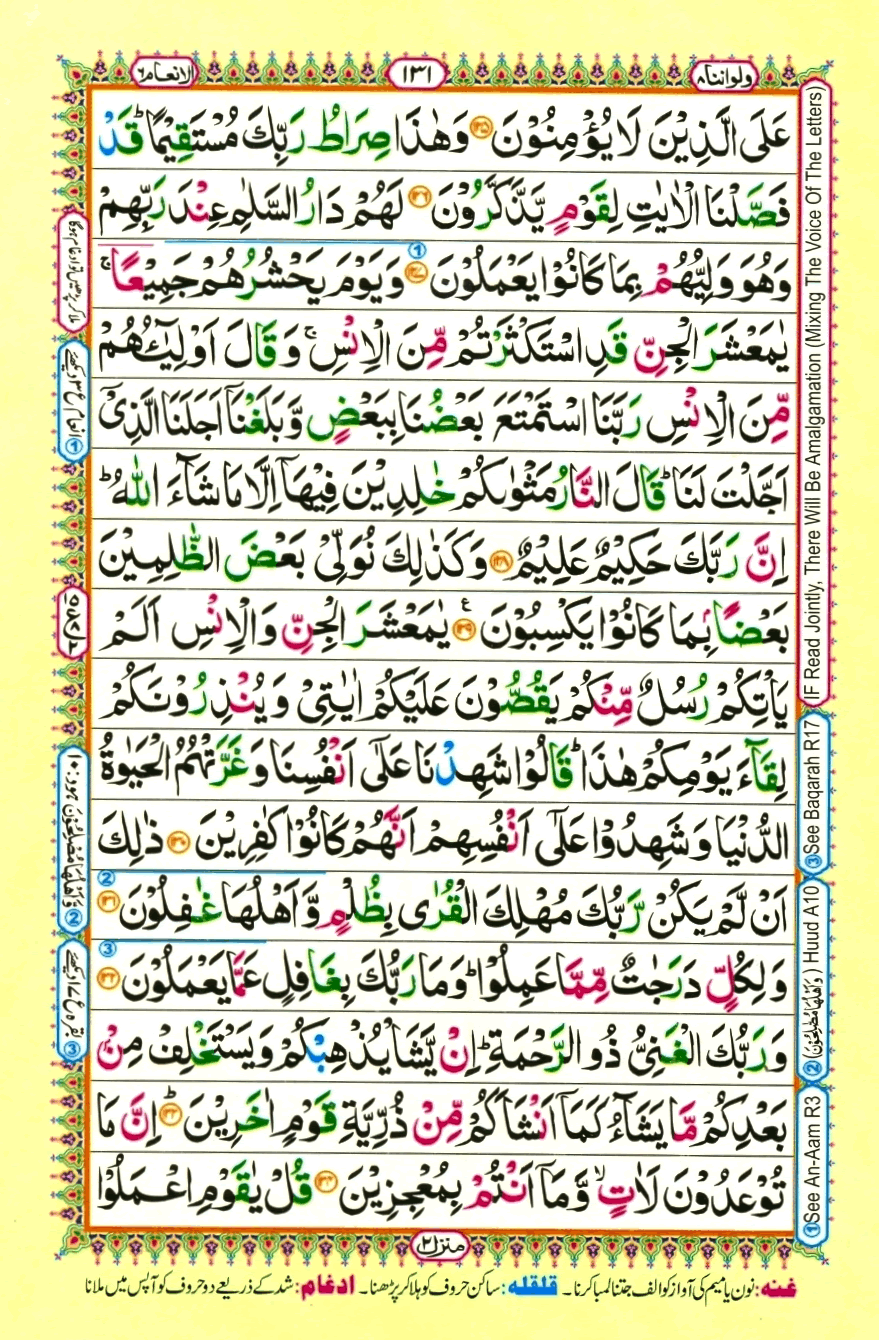 ولواننا ٨
١٣١
الانعام ٦
عَلَى الَّذِيْنَ لَا يُؤْمِنُوْنَ ﴿١٢٥﴾ وَهٰذَا صِرَاطُ رَبِّكَ مُسْتَقِيْمًا ؕ قَدْ
فَصَّلْنَا الْاٰيٰتِ لِقَوْمٍ يَّذَّكَّرُوْنَ ﴿١٢٦﴾ لَهُمْ دَارُ السَّلٰمِ عِنْدَ رَبِّهِمْ
وَهُوَ وَلِيُّهُمْ بِمَا كَانُوْا يَعْمَلُوْنَ ﴿١٢٧﴾ وَيَوْمَ يَحْشُرُهُمْ جَمِيْعًا ۚ
يٰمَعْشَرَ الْجِنِّ قَدِ اسْتَكْثَرْتُمْ مِّنَ الْاِنْسِ ۚ وَقَالَ اَوْلِيٰٓـُٔهُمْ
مِّنَ الْاِنْسِ رَبَّنَا اسْتَمْتَعَ بَعْضُنَا بِبَعْضٍ وَّبَلَغْنَاۤ اَجَلَنَا الَّذِيْۤ
اَجَّلْتَ لَنَا ؕ قَالَ النَّارُ مَثْوٰىكُمْ خٰلِدِيْنَ فِيْهَاۤ اِلَّا مَا شَآءَ اللّٰهُ ؕ
اِنَّ رَبَّكَ حَكِيْمٌ عَلِيْمٌ ﴿١٢٨﴾ وَكَذٰلِكَ نُوَلِّيْ بَعْضَ الظّٰلِمِيْنَ
بَعْضًۢا بِمَا كَانُوْا يَكْسِبُوْنَ ﴿١٢٩﴾ ع يٰمَعْشَرَ الْجِنِّ وَالْاِنْسِ اَلَمْ
يَاْتِكُمْ رُسُلٌ مِّنْكُمْ يَقُصُّوْنَ عَلَيْكُمْ اٰيٰتِيْ وَيُنْذِرُوْنَكُمْ
لِقَآءَ يَوْمِكُمْ هٰذَا ؕ قَالُوْا شَهِدْنَا عَلٰۤى اَنْفُسِنَا وَغَرَّتْهُمُ الْحَيٰوةُ
الدُّنْيَا وَشَهِدُوْا عَلٰۤى اَنْفُسِهِمْ اَنَّهُمْ كَانُوْا كٰفِرِيْنَ ﴿١٣٠﴾ ذٰلِكَ
اَنْ لَّمْ يَكُنْ رَّبُّكَ مُهْلِكَ الْقُرٰى بِظُلْمٍ وَّاَهْلُهَا غٰفِلُوْنَ ﴿١٣١﴾
وَلِكُلٍّ دَرَجٰتٌ مِّمَّا عَمِلُوْا ؕ وَمَا رَبُّكَ بِغَافِلٍ عَمَّا يَعْمَلُوْنَ ﴿١٣٢﴾
وَرَبُّكَ الْغَنِيُّ ذُو الرَّحْمَةِ ؕ اِنْ يَّشَاْ يُذْهِبْكُمْ وَيَسْتَخْلِفْ مِنْۢ
بَعْدِكُمْ مَّا يَشَآءُ كَمَاۤ اَنْشَاَكُمْ مِّنْ ذُرِّيَّةِ قَوْمٍ اٰخَرِيْنَ ﴿١٣٣﴾ ؕ اِنَّ مَا
تُوْعَدُوْنَ لَاٰتٍ ۙ وَّمَاۤ اَنْتُمْ بِمُعْجِزِيْنَ ﴿١٣٤﴾ قُلْ يٰقَوْمِ اعْمَلُوْا
منزل ٢
غنه: نون یا میم کی آواز کو الف جتنا لمبا کرنا۔ قلقله: ساکن حروف کو ہلا کر پڑھنا۔ ادغام: شد کے ذریعے دو حروف کو آپس میں ملانا
IF Read Jointly, There Will Be Amalgamation (Mixing The Voice Of The Letters)
③See Baqarah R17
② (وَاَهْلُهَا مُصْلِحُوْنَ) Huud A10
①See An-Aam R3
ملا کر پڑھیں تو ادغام ہوگا
① انعام ع ٣ دیکھئے
② وَاَهْلُهَا مُصْلِحُوْنَ هود: ١٠
③ بقره ع ١٧ دیکھئے